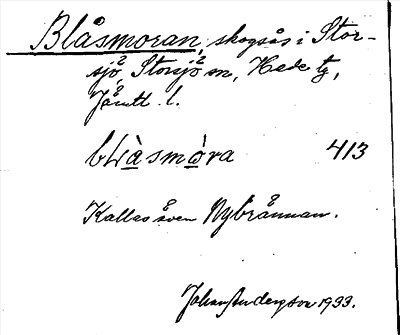 Blåsmoran, skogsås i Stor-
sjö, Storsjö sn, Hede tg,
Jämtl. l.
blàsmòra 413
Kallas även Nybrännan.
Johan Anderson 1933.